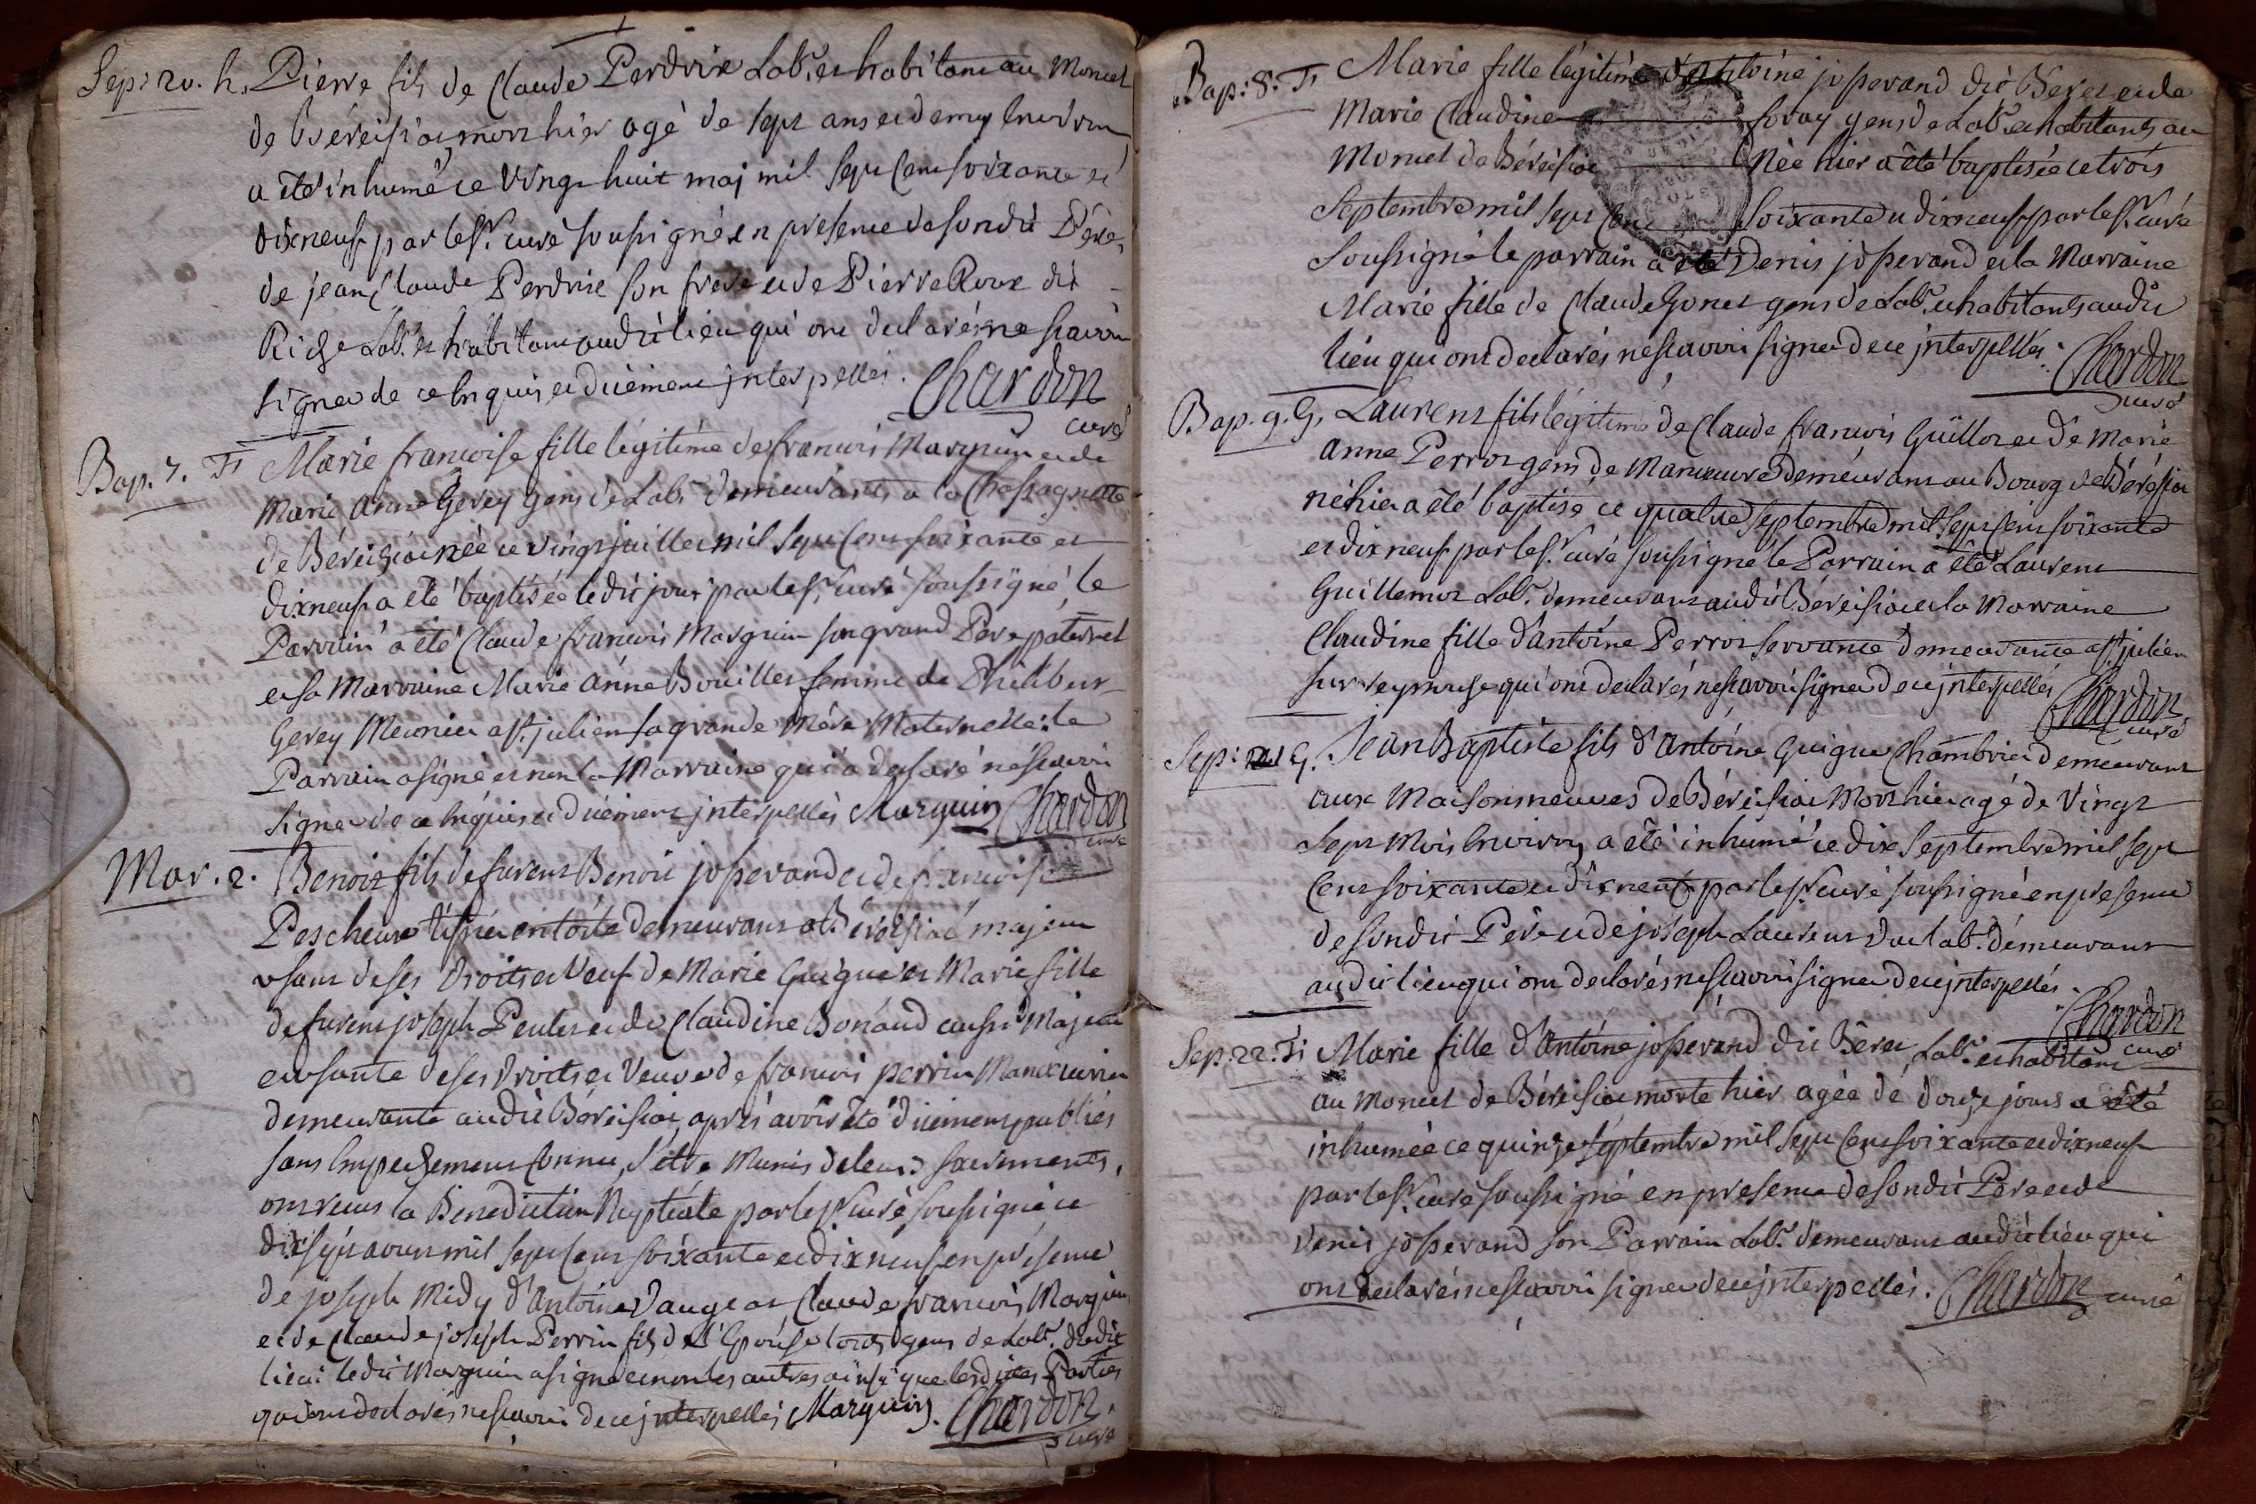 Sep: 20. h. Pierre fils de Claude Perdrix Labr. et habitant au Moncel
de Béreisiat mort hier agé de sept ans et demy environ
a été inhumé ce vingt huit maj mil sept cent soixante et
dixneuf par le Sr. curé soussigné en presence de sondit Pére,
de jean Claude Perdrix son frere et de Pierre Roux dit
Riche Labr. et habitant audit lieu qui ont declarés ne scavoir
signer de ce enquis et düement jnterpellés. Chardon
curé
Bap. 7. F. Marie francoise fille légitime de francois Marguin et de
Marie Anne Gerey gens de Labr. demeurants a la Chassagnette
de Béreisiat née ce vingt juillet mil sept cent soixante et
dixneuf a été baptisée ledit jour par le Sr. curé soussigné, le
Parrain a été Claude francois Marguin son grand Pere paternel
et sa Marraine Marie Anne Bouillet femme de Philibert
Gerey Meunier a St. julien sa grande Mére Maternelle: le
Parrain a signé et non la Marraine qui a declaré ne scavoir
signer de ce enquis et düement jnterpellés Marguin Chardon
curé
Mar. 2. Benoit fils de furent Benoit josserand et de francoise
Pescheur demeurant a Béreisiat majeur
usant de ses droits et Veuf de Marie Guigue et Marie fille
de furent joseph Peulet et de Claudine Bonaud aussi Majeure
et usante de ses droits et Veuve de francois perrin Manœuvrier
demeurante audit Béreisiat, aprés avoir été düement publiés
sans Empechement connu, s'etre Munis de leurs sacrements,
ont reçus la Bénediction Nuptiale par le Sr. curé soussigné ce
dix sept aoust mil sept cent soixante et dixneuf en présence
de joseph Midy d'Antoine Daujat Claude francois Marguin
et de Claude joseph Perrin fils de l'Epouse tous gens de Labr. dudit
lieu: ledit Marguin a signé et non les autres ainsi que lesdites Parties
qui ont declarés ne scavoir de ce jnterpellés Marguin. Chardon.
curé
Bap: 8. F. Marie fille légitime d'Antoine josserand dit Béret et de
Marie Claudine foray gens de Labr. et habitants au
Moncel de Béreisiat Née hier a été baptisée ce trois
Septembre mil sept cent soixante et dixneuf par le Sr. curé
Soussigné le parrain a été Denis josserand et la Marraine
Marie fille de Claude Gonet gens de Labr. et habitants audit
lieu qui ont declarés ne scavoir signer de ce jnterpellés. Chardon
curé
Bap. 9. G. Laurent fils légitime de Claude francois Guillot et de Marie
Anne Perrot gens de Manœuvre demeurant au Bourg de Béreisiat
né hier a été baptisé ce quatre septembre mil sept cent soixante
et dixneuf par le Sr. curé soussigné le Parrain a été Laurent
Guillemot Labr. demeurant audit Béreisiat et la Marraine
Claudine fille d'Antoine Perrot servante demeurante a St. julien
sur reyssouse qui ont declarés ne scavoir signer de ce jnterpellés Chardon
curé
Sep: 21 G. Jean Baptiste fils d'Antoine Guigue Chambrier demeurant
aux Maisonneuves de Béreisiat Mort hier agé de vingt
Sept Mois Environ a été inhumé ce dix Septembre mil sept
Cent soixante et dixneuf par le Sr. curé soussigné en presence
de sondit Pére et de joseph Laurent Labr. demeurant
audit lieu qui ont declarés ne scavoir signer de ce jnterpellés.
Chardon
curé
Sep. 22. F. Marie fille d'Antoine josserand dit Béret, Labr. et habitant
au Moncel de Béreisiat morte hier agée de douze jours a été
inhumée ce quinze septembre mil sept cent soixante et dixneuf
par le Sr. curé soussigné en presence de sondit Pere et de
Denis josserand son Parrain Labr. demeurant audit lieu qui
ont declarés ne scavoir signer de ce jnterpellés. Chardon curé